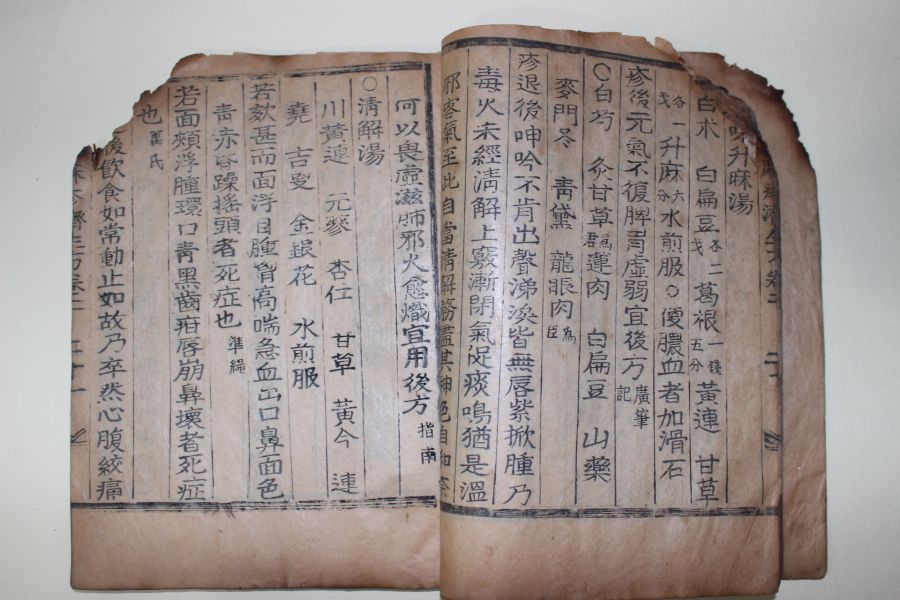 味升麻湯
白朮 白扁豆各二戔 葛根一錢五分 黃連 甘草
各一戔 升麻六分 水煎服○便膿血者加滑石
疹後元氣不復脾胃虛弱宜後方 廣筆記
○白芍 灸甘草爲君 蓮肉 白扁豆 山藥
麥門冬 靑黛 龍眼肉爲臣
疹退後呻吟不肯出聲涕淚皆無唇紫掀腫乃
毒火未經淸解上竅漸閉氣促痰鳴猶是溫
邪客氣至此自當淸解務盡其神色自和奈
何以畏虛滋肺邪火愈熾宜用後方 指南
○淸解湯
川黃連 元參 杏仁 甘草 黃今 連
堯 吉更 金銀花 水煎服
若欬甚而面浮目腫胷高喘急血出口鼻面色
靑赤昏躁搖頭者死症也 準繩
若面頰浮腫環口靑黑齒疳唇崩鼻壞者死症
也 萬氏
後飮食如常動止如故乃卒然心腹絞痛